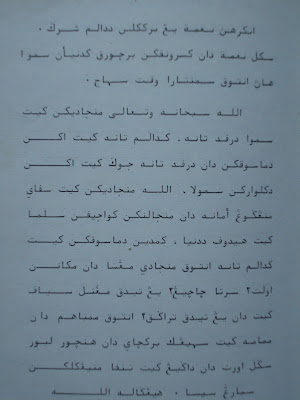 ايڬرهن نعمة يڠ برككلن ددالم شرݢ .
سݢل نعمة دان كسرونوقكن برچورق كدنيأن سموا
هاڽ اونتوق سمنتارا وقت سهاج .
الله سبحانه وتعالى منجاديكن كيت
سموا درفد تانه . كدالم تانه كيت اكن
دماسوقكن دان درفد تانه جوݢ كيت اكن
دكلواركن سمولا . الله منجاديكن كيت سفاي
منڠݢوڠ أمانه دان منجالنكن كواجيڤن سلما
كيت هيدوف ددنيا ، كمدين دماسوقكن كيت
كدالم تانه انتوق منجادي مڠسا دان مكانن
اولت٢ سرتا چاچيڠ٢ يڠ تيدق مڠنل سياف
كيت دان يڠ تيدق تراڬق٢ انتوق ممباهم دان
ممامه كيت سهيڠݢ بركچاي دان هنچور لبور
سݢل اورت دان داݢيڠ كيت تنفا منيڠݢلكن
سبارڠ سيسا . هيڠݢاله الله